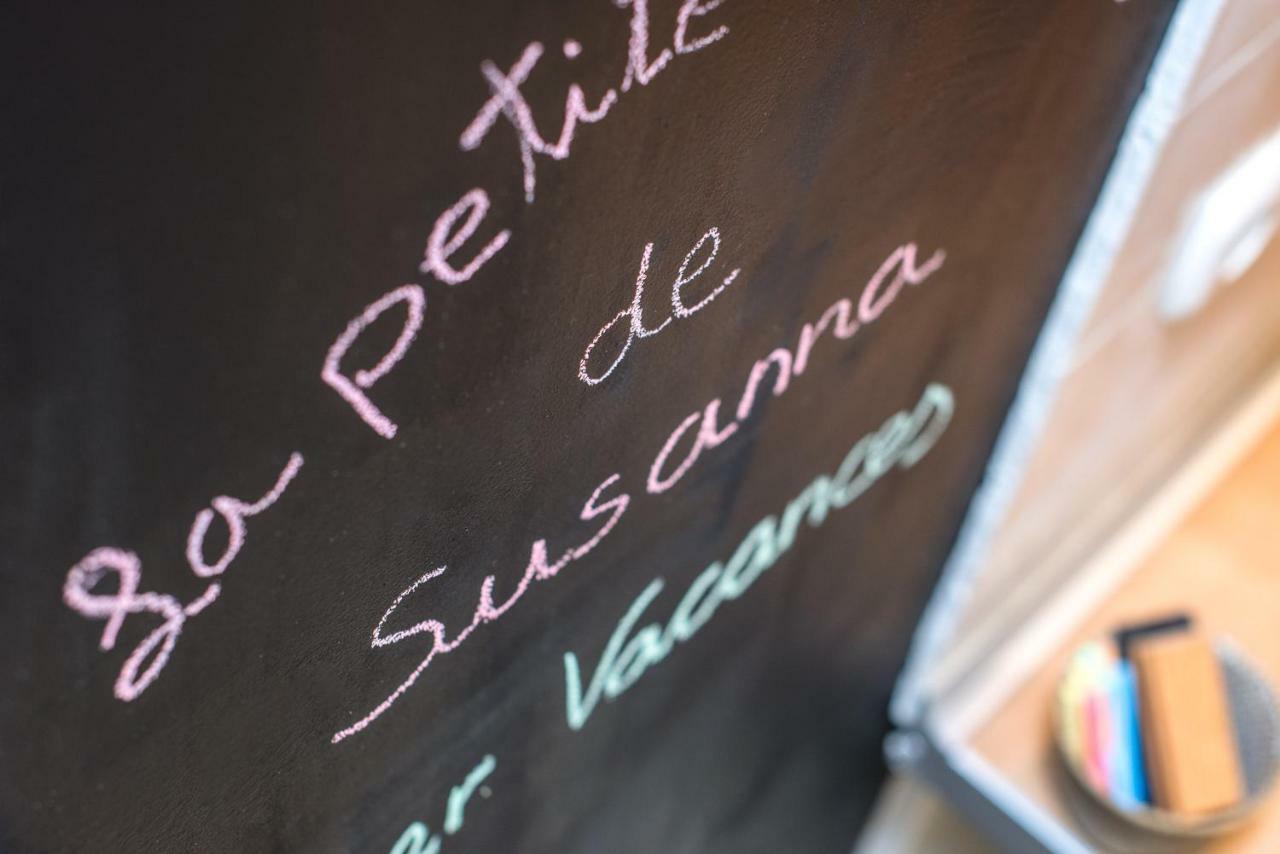 La Petite
de
Susanna
Vacances